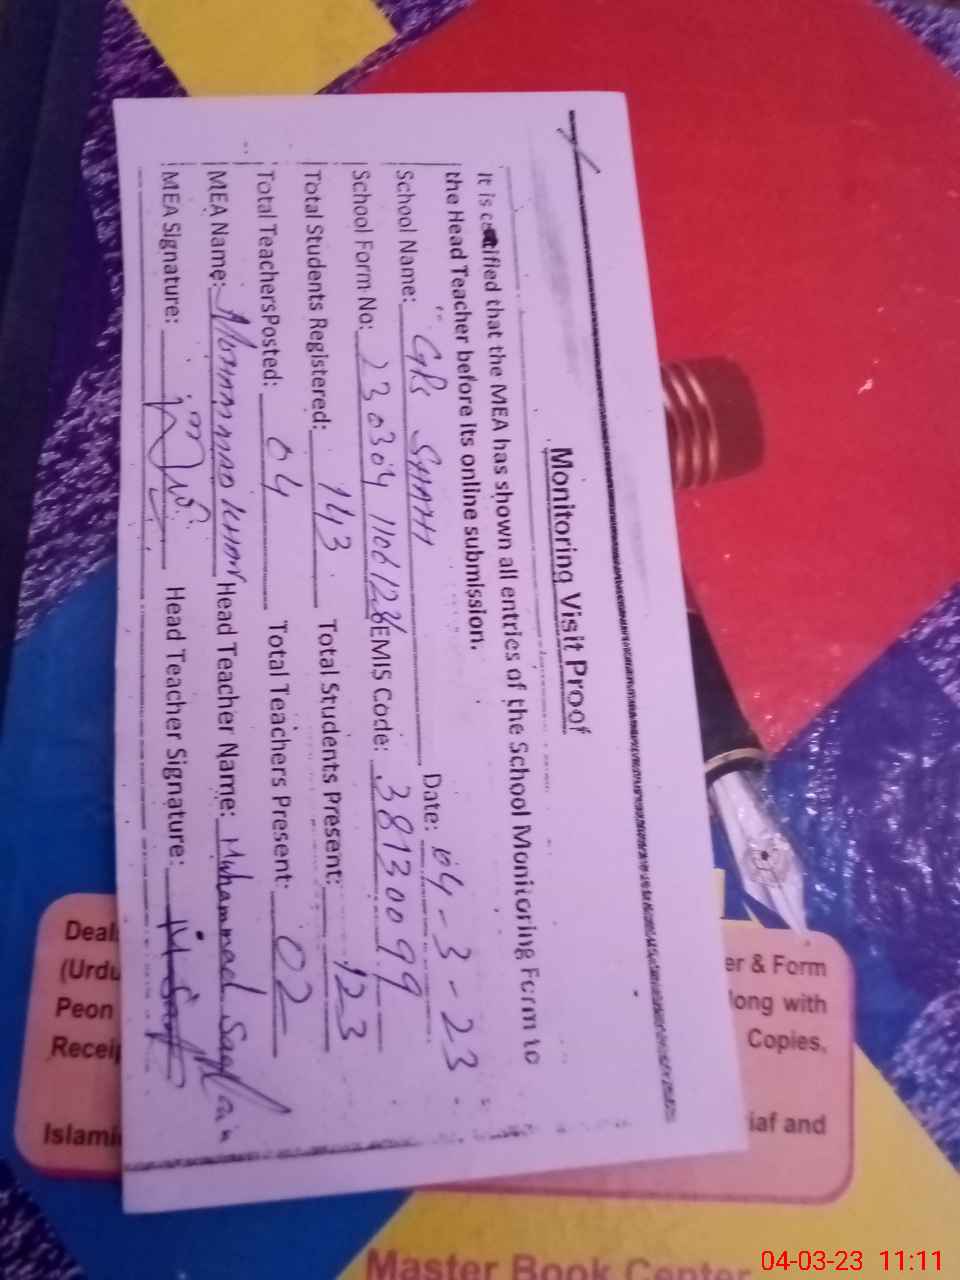 Monitoring Visit Proof
It is certified that the MEA has shown all entries of the School Monitoring Form to
the Head Teacher before its online submission.
School Name: GPS Date: 04-3-23
School Form No: EMIS Code: 38130099
Total Students Registered: 143 Total Students Present: 123
Total TeachersPosted: 04 Total Teachers Present: 02
MEA Name: Head Teacher Name: Muhammad
MEA Signature: Head Teacher Signature:
Deal
(Urdu
Peon
Receip
Islami
er & Form
long with
Copies,
iaf and
Master Book Center
04-03-23 11:11